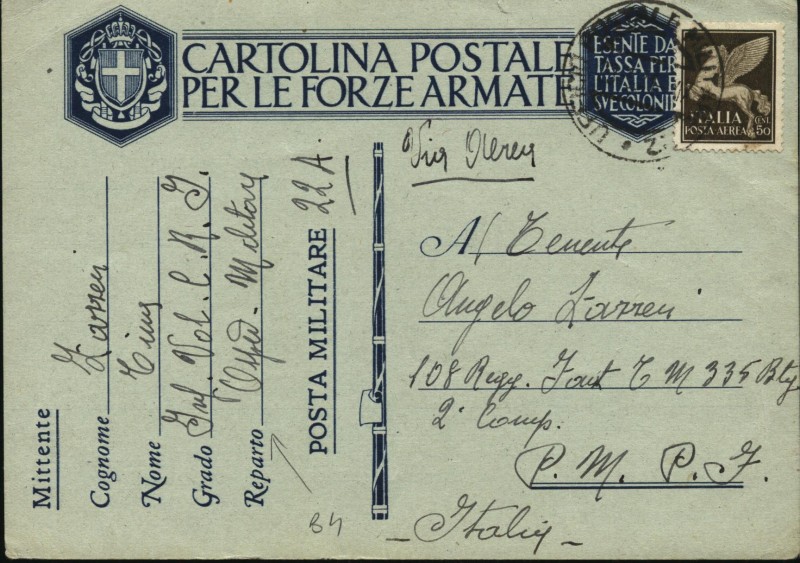 CARTOLINA POSTALE
PER LE FORZE ARMATE
ESENTE DA
TASSA PER
L'ITALIA E
SVE COLONIE
ITALIA
POSTA-AEREA
CENT. 50
Via Aerea
Mittente
Cognome Lazzeri
Nome
Grado Inf. Vol. C. R. I.
Reparto Osped. Militare
POSTA MILITARE 22 A.
Al Tenente
Angelo Lazzeri
108 Regg. Fant. C M 335 Btg
2ª Comp.
P. M. P. I.
- Italia -